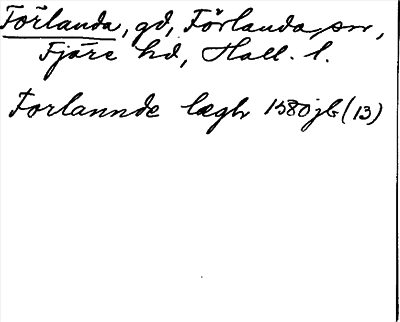 Förlanda, gd, Förlanda sn,
Fjäre hd, Hall. l.
Forlannde lægh 1580 jb (13)